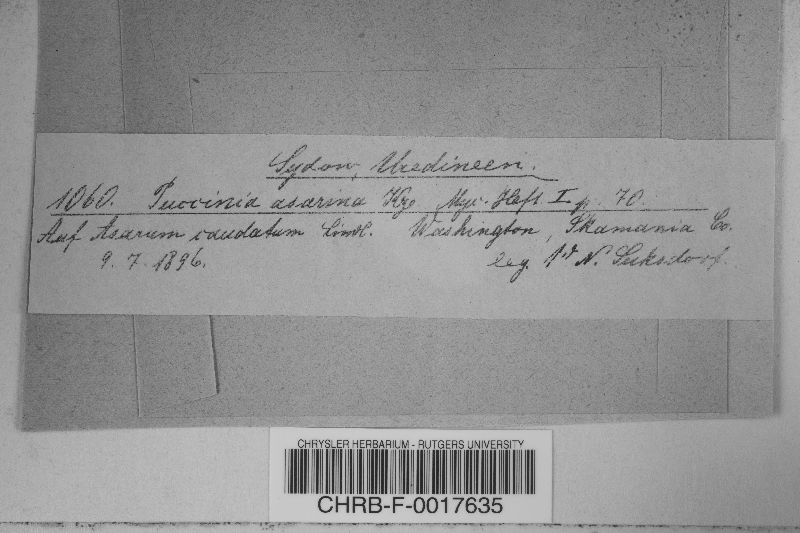 Sydow, Uredineen.
1060. Puccinia asarina Kze. Myc. Heft I p. 70.
Auf Asarum caudatum Lindl. Washington, Skamania Co.
9. 7. 1896. leg. W. N. Suksdorf.
CHRYSLER HERBARIUM - RUTGERS UNIVERSITY
CHRB-F-0017635